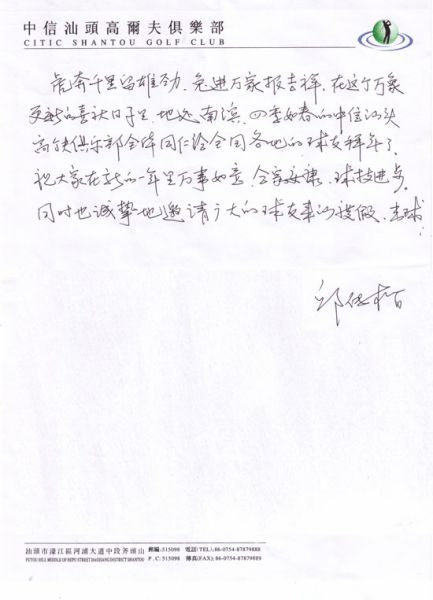 中信汕頭高爾夫俱樂部
CITIC SHANTOU GOLF CLUB
虎奔千里留雄劲，兔进万家报吉祥，在这个万象
更新的喜秋日子里，地处南滨，四季如春的中信汕头
高尔夫俱乐部全体同仁给全国各地的球友拜年了，
祝大家在新的一年里万事如意，全家安康，球技进步，
同时也诚挚地邀请广大的球友来汕度假、击球
汕頭市濠江區河浦大道中段斧頭山 郵編:515098 電話(TEL):86-0754-87879888
FUTOU HILL MIDDLE OF HEPU STREET HAOJIANG DISTRICT SHANTOU P.C:515098 傳真(FAX):86-0754-87879889